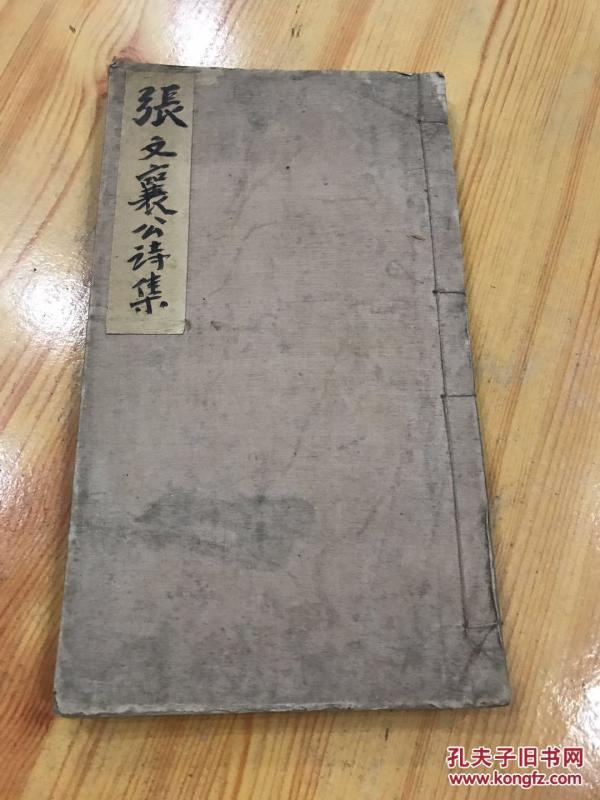 張文襄公诗集
孔夫子旧书网
www.kongfz.com